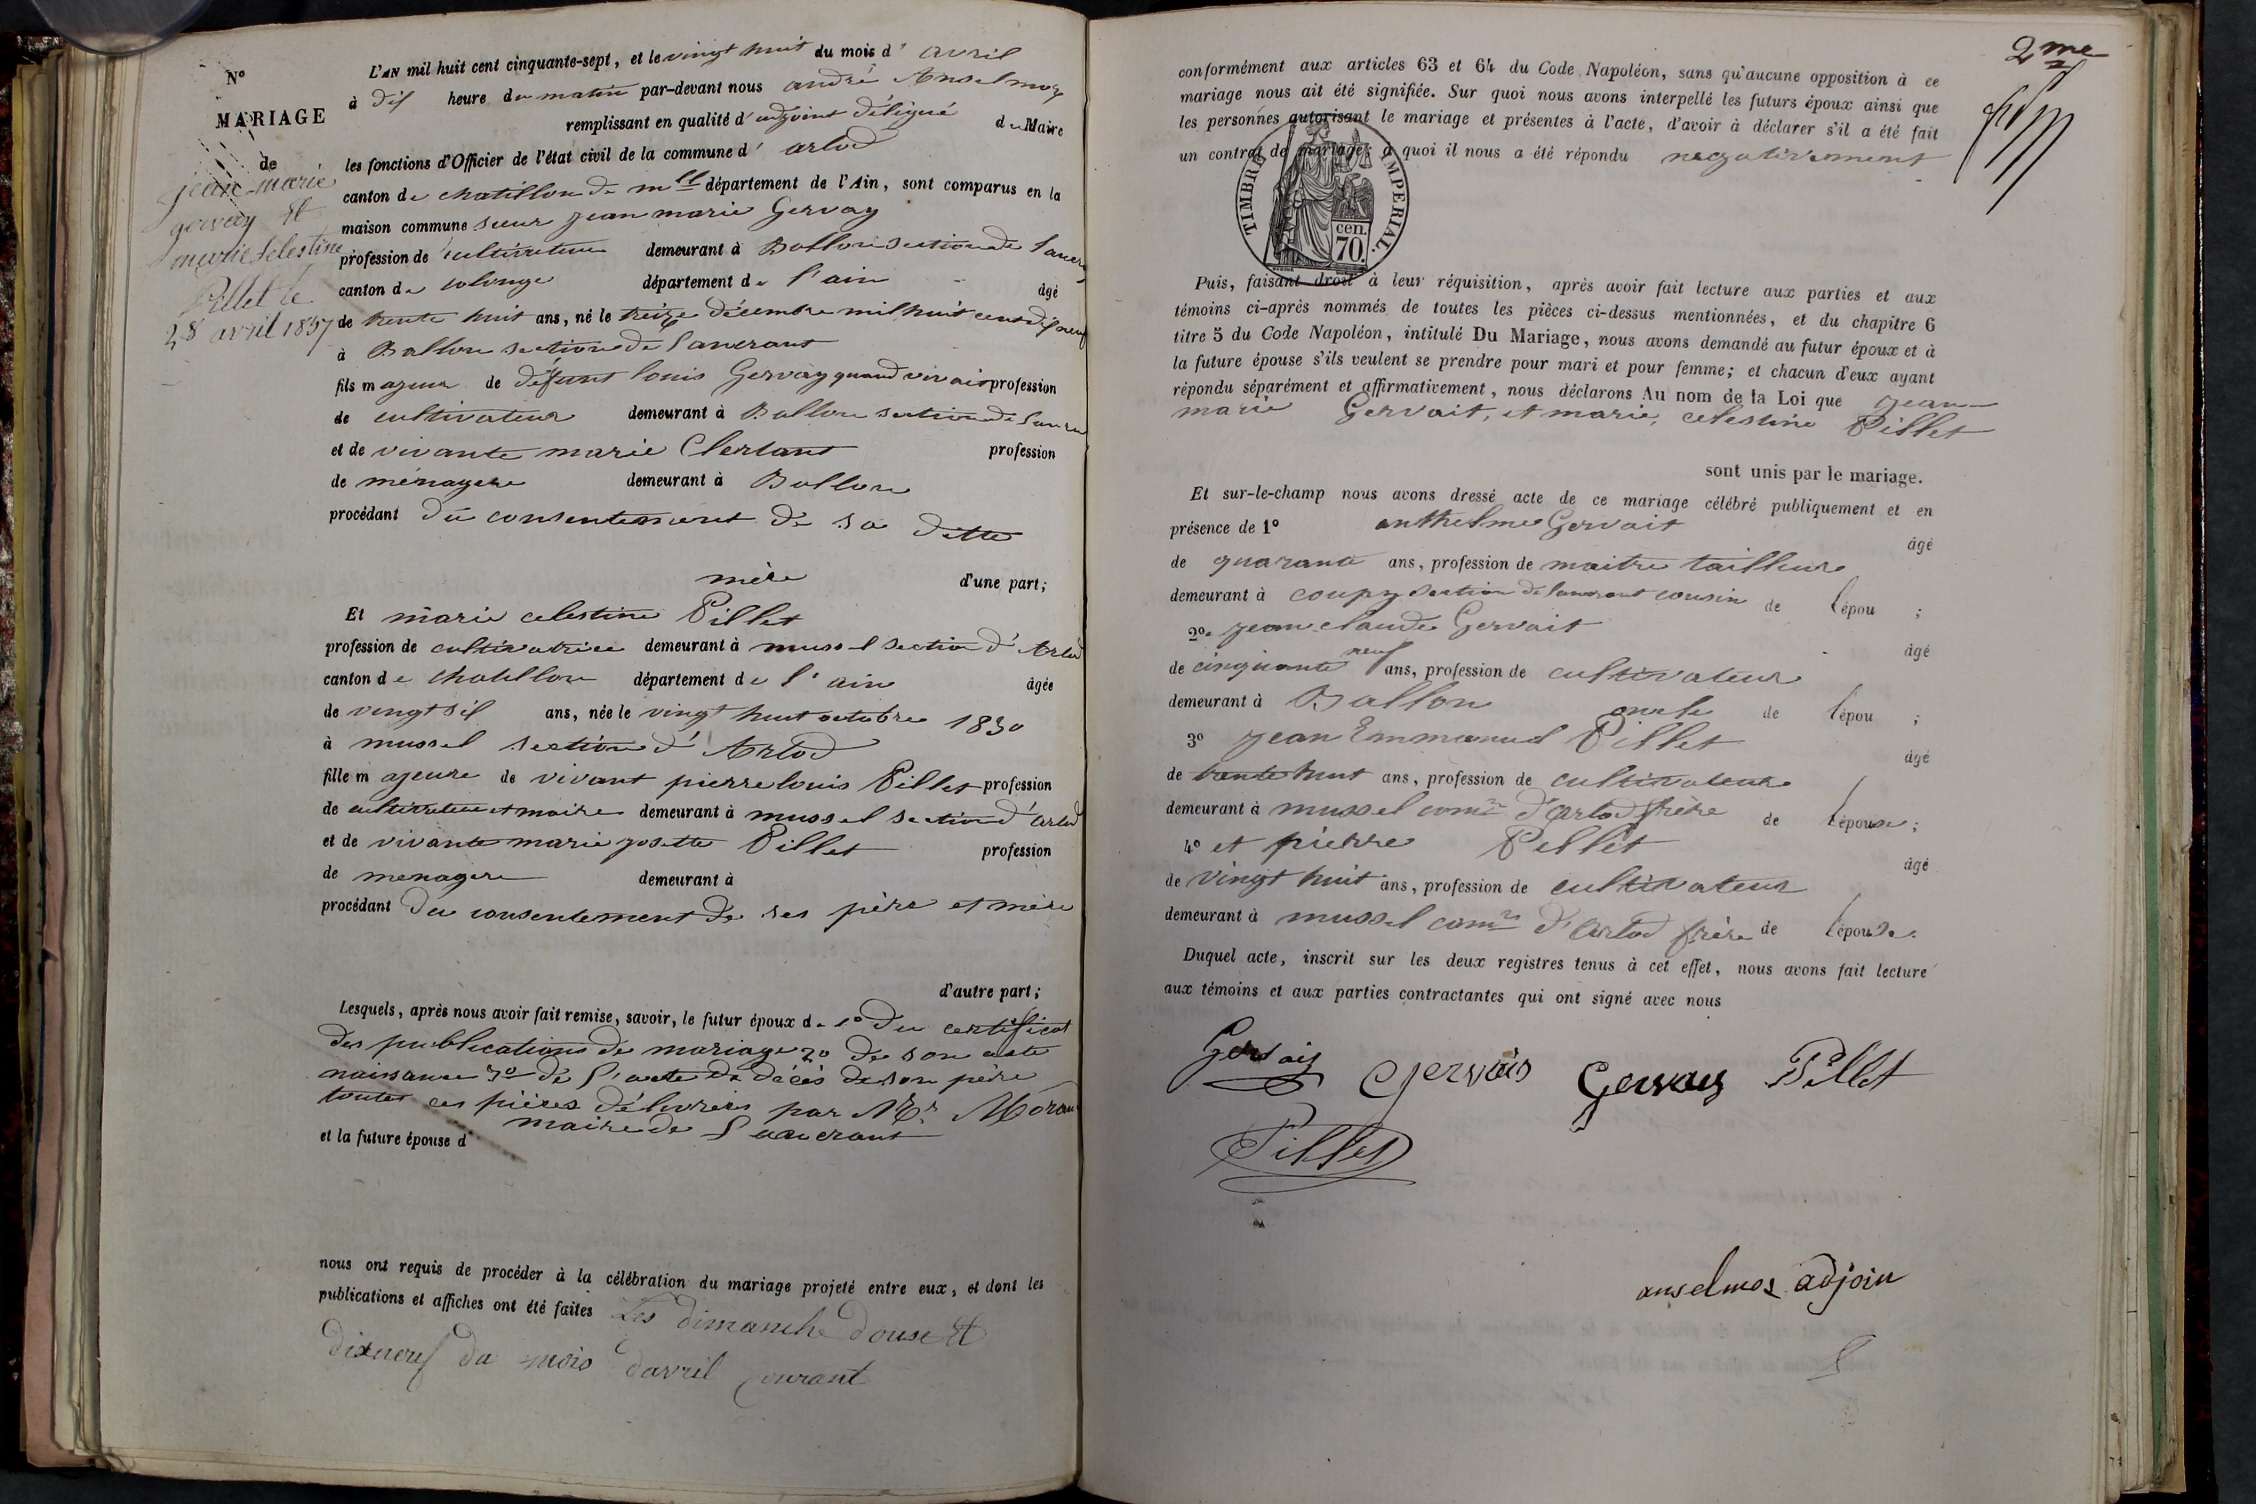 N°
MARIAGE
de
jean-marie
gervay et
marie célestine
Pillet le
28 avril 1857
L'AN mil huit cent cinquante-sept, et le vingt huit du mois d' avril
à dix heure du matin par-devant nous andré Anselmoz
remplissant en qualité d'adjoint délégué du Maire
les fonctions d'Officier de l'état civil de la commune d' arlod
canton de chatillon de mlle département de l'Ain, sont comparus en la
maison commune sieur jean marie Gervay
profession de cultivateur demeurant à Ballon section de
canton de colonge département de l'ain âgé
de trente huit ans, né le treize décembre mil huit cent dix neuf
à Ballon section de Lancrant
fils majeur de défunt louis Gervay quand vivait profession
de cultivateur demeurant à Ballon section de
et de vivante marie Clertant profession
de ménagere demeurant à Ballon
procédant du consentement de sa ditte
mère d'une part;
Et marie celestine Pillet
profession de cultivatrice demeurant à mussel section d' Arlod
canton de chatillon département de l'ain âgée
de vingt six ans, née le vingt huit octobre 1830
à mussel section d' Arlod
fille majeure de vivant pierre louis Pillet profession
de cultivateur et maire demeurant à mussel section d'arlod
et de vivante marie josette Pillet profession
de menagere demeurant à
procédant du consentement de ses père et mère
d'autre part;
Lesquels, après nous avoir fait remise, savoir, le futur époux de 1° du certificat
des publications de mariage 2° de son acte
naissance 3° de l'acte de décès de son père
toutes ces pièces délivrées par Mr
maire de Lancrant
et la future épouse d
nous ont requis de procéder à la célébration du mariage projeté entre eux, et dont les
publications et affiches ont été faites Les dimanche douse et
dixneuf du mois d'avril courant
2me
conformément aux articles 63 et 64 du Code Napoléon, sans qu'aucune opposition à ce
mariage nous ait été signifiée. Sur quoi nous avons interpellé les futurs époux ainsi que
les personnes autorisant le mariage et présentes à l'acte, d'avoir à déclarer s'il a été fait
un contrat de mariage, à quoi il nous a été répondu negativement
TIMBRE IMPERIAL.
cen.
70.
Puis, faisant droit à leur réquisition, après avoir fait lecture aux parties et aux
témoins ci-après nommés de toutes les pièces ci-dessus mentionnées, et du chapitre 6
titre 5 du Code Napoléon, intitulé Du Mariage, nous avons demandé au futur époux et à
la future épouse s'ils veulent se prendre pour mari et pour femme; et chacun d'eux ayant
répondu séparément et affirmativement, nous déclarons Au nom de la Loi que jean-
marie Gervait, et marie, celestine Pillet
sont unis par le mariage.
Et sur-le-champ nous avons dressé acte de ce mariage célébré publiquement et en
présence de 1° anthelme Gervait âgé
de quarante ans, profession de maitre tailleur
demeurant à coupy section de lancrant cousin de l'épou ;
2° jean-claude Gervait âgé
de cinquante neuf ans, profession de cultivateur
demeurant à Ballon oncle de l'épou ;
3° jean Emmanuel Pillet âgé
de trente huit ans, profession de cultivateur
demeurant à mussel comne d'arlod frère de l'épouse ;
4° et pierre Pillet âgé
de vingt huit ans, profession de cultivateur
demeurant à mussel comne d'Arlod frère de l'épouse.
Duquel acte, inscrit sur les deux registres tenus à cet effet, nous avons fait lecture
aux témoins et aux parties contractantes qui ont signé avec nous
Gervais Gervais Gervais Pillet
Pillet
anselmoz adjoin